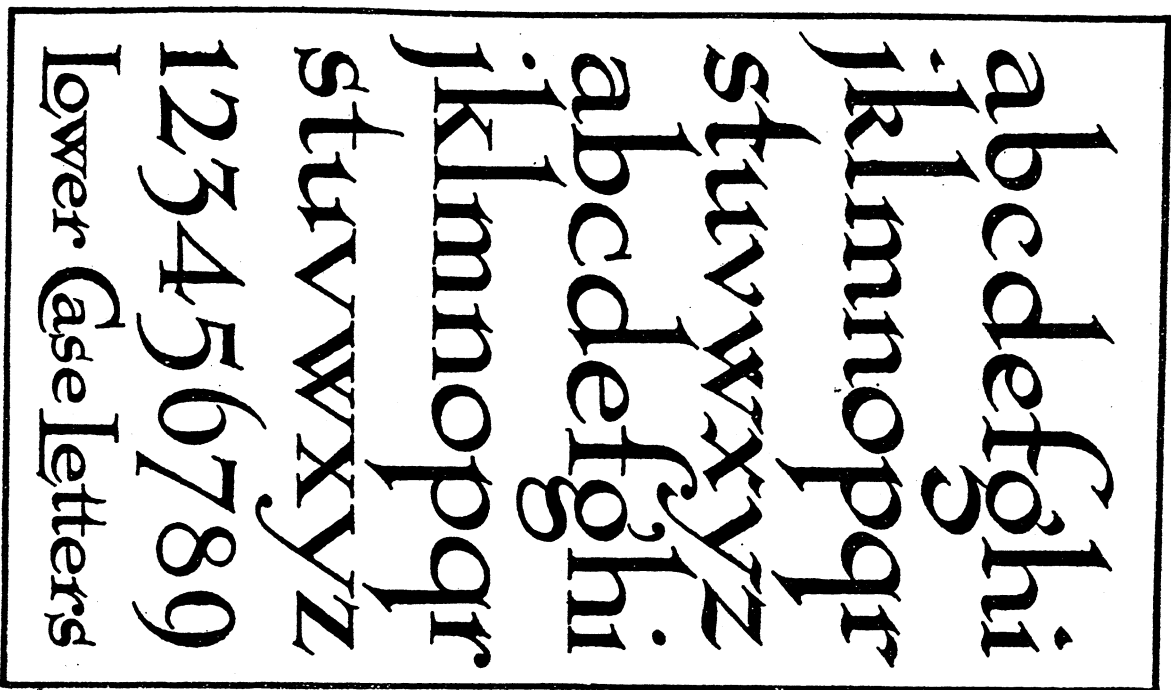 abcdefghi
jklmnopqr
stuvwxyz
abcdefghi
jklmnopqr
stuvwxyz
123456789
Lower Case Letters